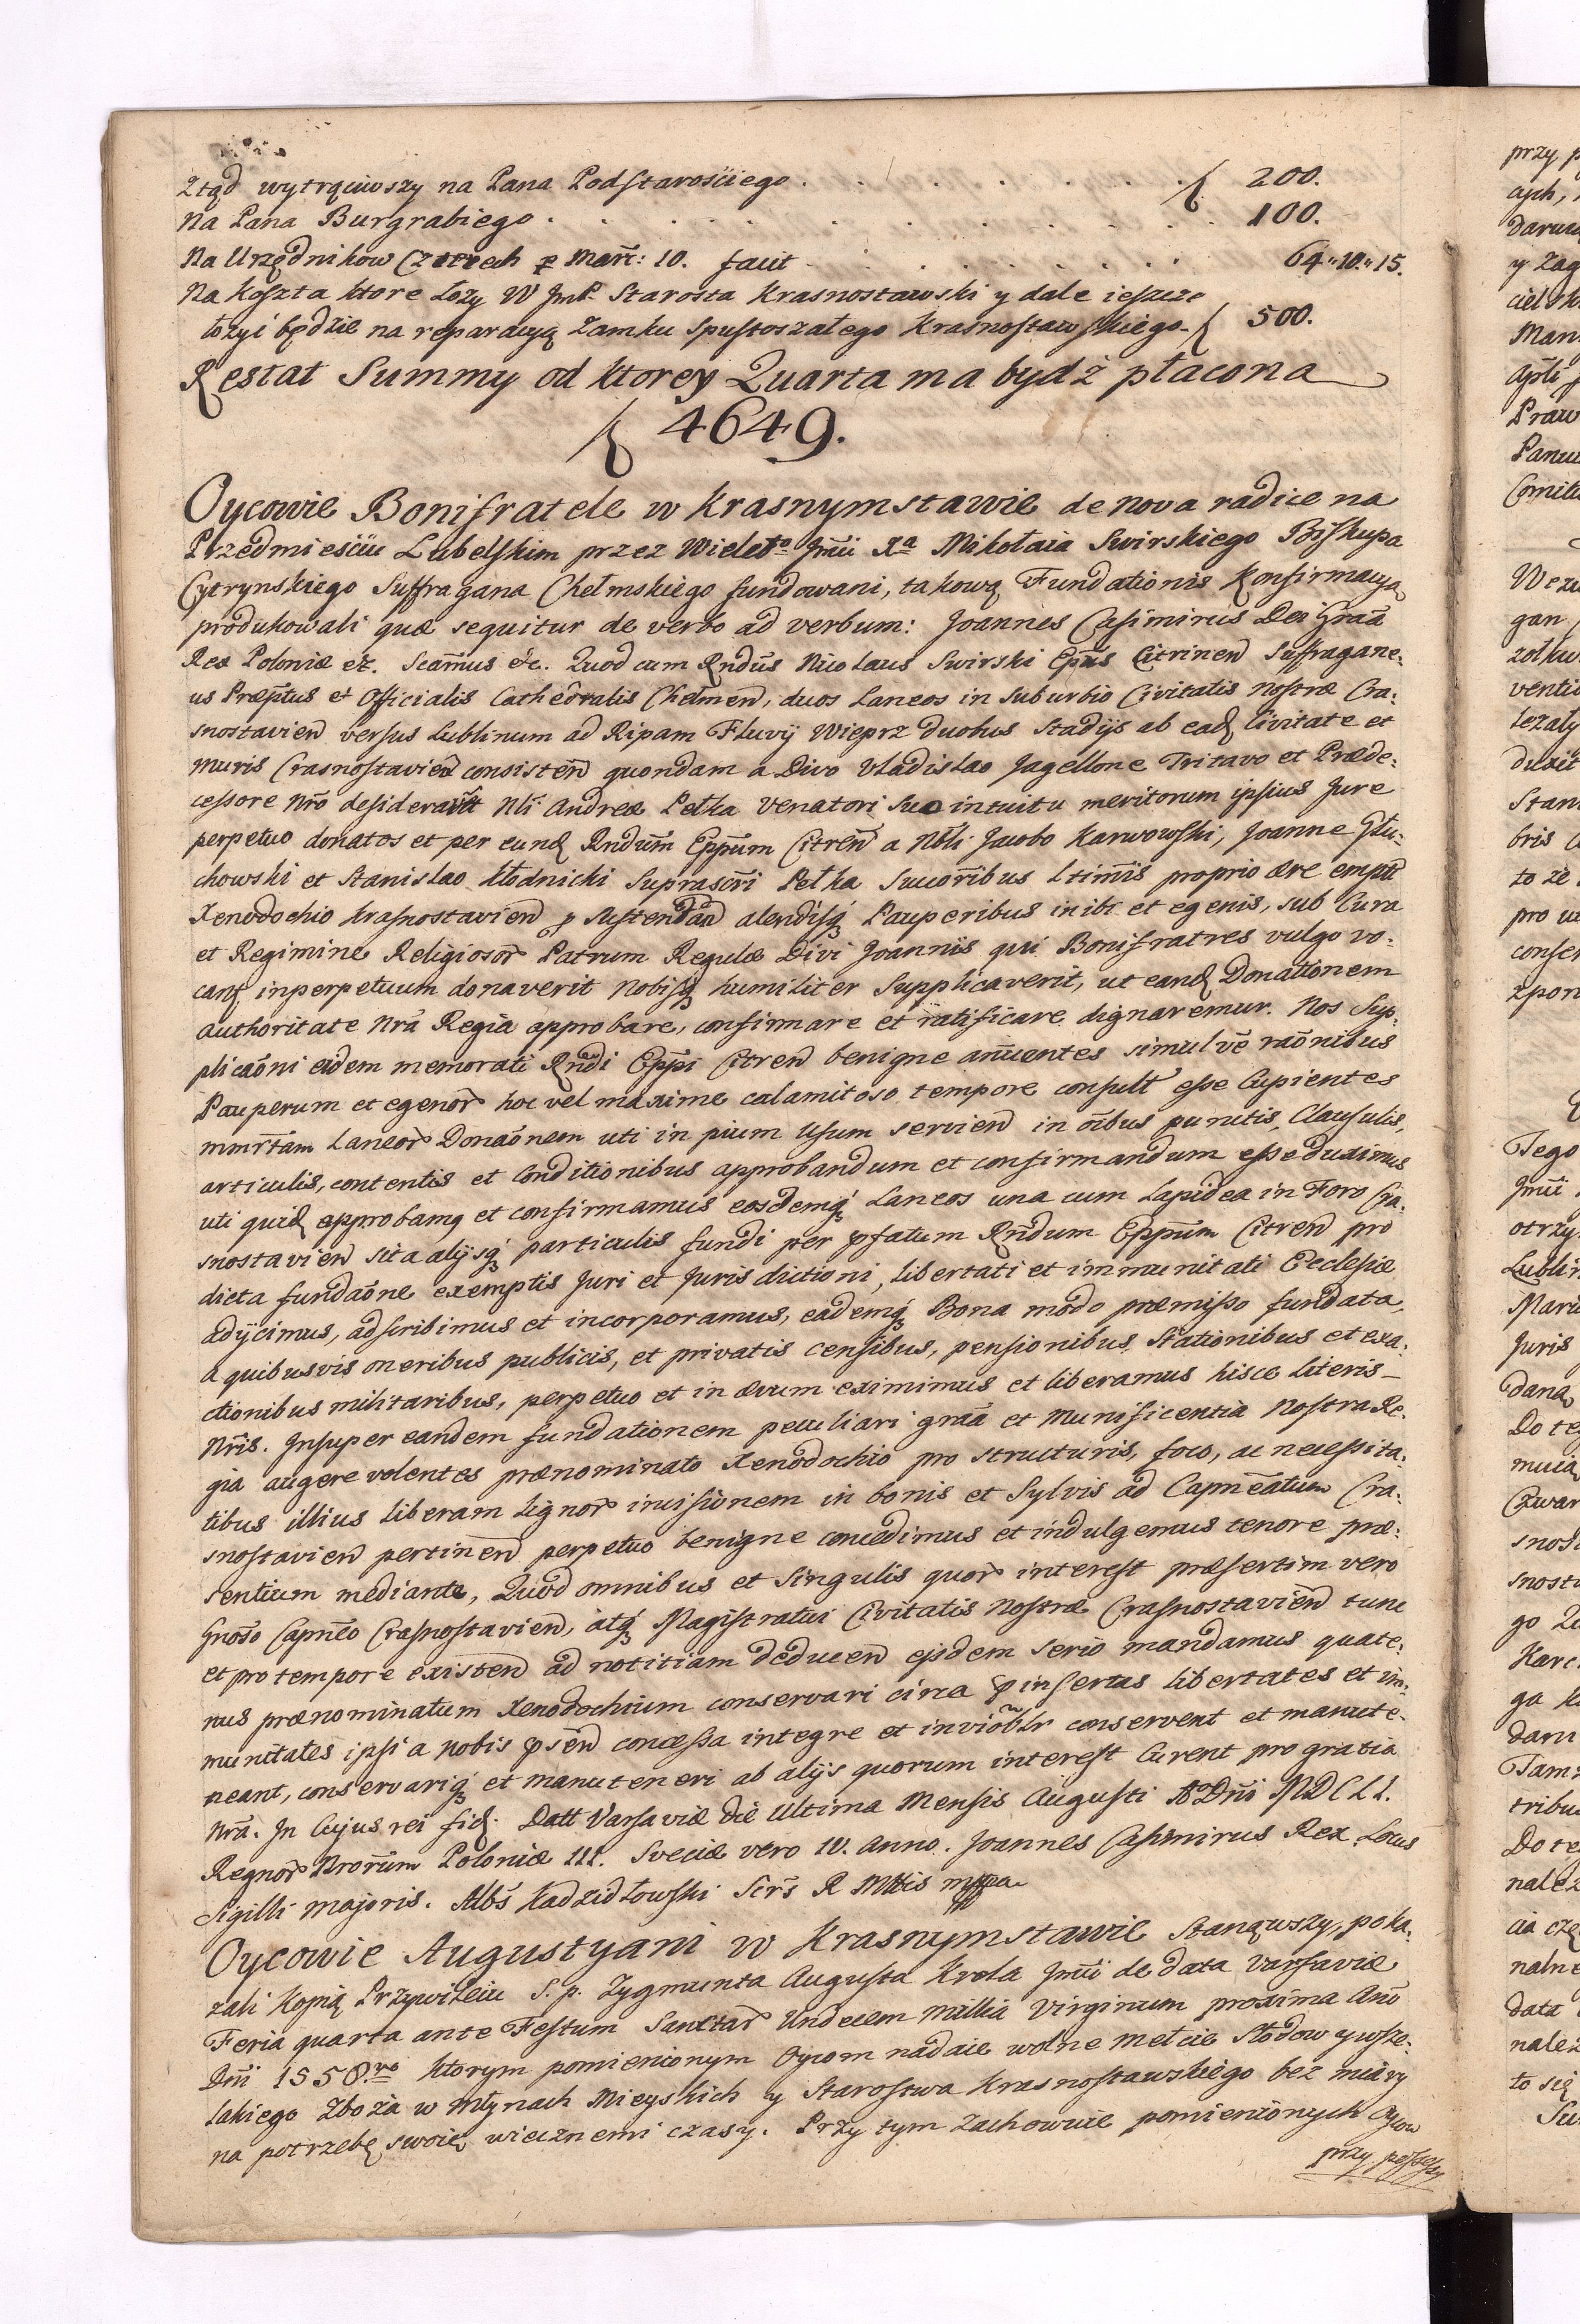 Ztąd wytrąciwszy na Pana Podstarosciego . . . . . . . . ƒ 200.
Na Pana Burgrabiego . . . . . . . . . . . 100.
Na Urzędnikow Czterech p Marc: 10. facit . . . . . . . 64„10„15.
Na Koszta ktore Łoży W JmP. Starosta Krasnostawski y dale ieszcze
łozyć będzie na reparacyą Zamku Spustoszałego Krasnostawskiego. ƒ 500.
Restat Summy od ktorey Quarta ma bydź płacona
ƒ 4649.
Oycowie Bonifratele w Krasnymstawie de nova radice na
Przedmiesciu Lubelskim przez Wieleb Jmci Xa Mikołaia Swirskiego Biskupa
Cytrynskiego Suffragana Chełmskiego fundowani, takową Fundationis Konfirmacyą
produkowali quæ sequitur de verbo ad verbum: Joannes Casimirus Dei Graã
Rex Poloniæ etc. Scãmus &c. Quod cum Rñdus Nicolaus Swirski Eppũs Citrineñ Suffragane-
us Præptus et Officialis Cathedralis Chelmeñ, duos Laneos in Suburbio Civitatis Nostræ Cra-
snostavieñ versus Lublinum ad Ripam Fluvij Wieprz duobus Stadijs ab eadꝫ Civitate et
muris Crasnostavieñ consisteñ quondam a Divo Vladislao Jagellone Tritavo et Præde-
cessore Nrõ desiderãtt Nli Andreæ Pełka Venatori Suo intuitu meritorum ipsius Jure
perpetuo donatos et per eundꝫ Rñdum Eppum Citreñ a Nbli Jacobo Karwowski, Joanne Głu-
chowski et Stanislao Kłodnicki Suprascri Pełka Succoribus Ltimis proprio ære emptt
Xenodochio Krasnostavieñ p Sustendãn alendisqꝫ Pauperibus inibi et egenis, sub Cura
et Regimine Religiosor Patrum Regulæ Divi Joannis qui Bonifratres vulgo vo-
canꝫ inperpetuum donaverit Nobisqꝫ humiliter Supplicaverit, ut eandꝫ Donationem
authoritate Nrã Regia approbare, confirmare et ratificare dignaremur. Nos Sup-
plicaõni eidem memorati Rñdi Eppi Citreñ benigne annuentes simul vẽ raõnibus
Pauperum et egenor hoc vel maxime calamitoso tempore consult esse Cupientes
mmrtam Laneor Donaõnem uti in pium Usum servien in oĩbus punctis, Clausulis,
articulis, contentis et Conditionibus approbandum et confirmandum esse duximus
uti quidꝫ approbamꝫ et confirmamus eosdemqꝫ Laneos una cum Lapidea in Foro Cra-
snostavieñ sita alijsqꝫ particulis fundi per pfatum Rñdum Eppum Citreñ pro
dicta fundaõne exemptis Juri et Jurisdictioni, libertati et immunitati Ecclesiæ
adijcimus, adscribimus et incorporamus, eademqꝫ Bona modo præmisso fundata,
a quibusvis oneribus publicis, et privatis censibus, pensionibus Stationibus et exa-
ctionibus militaribus, perpetuo et in ævum eximimus et liberamus hisce literis
Nris. Insuper eandem fundationem peculiari graã et Munificentia Nostra Re-
gia augere volentes prænominato Xenodochio pro structuris, foco, ac necessita-
tibus illius liberam lignor incisionem in bonis et Sylvis ad Capneatum Cra-
snostavieñ pertineñ perpetuo benigne concedimus et indulgemus tenore præ-
sentium mediante, Quod omnibus et Singulis quor interest præsertim vero
Gnoso Capneo Crasnostavieñ, atqꝫ Magistratui Civitatis Nostræ Crasnostavieñ tunc
et pro tempore existeñ ad notitiam deduceñ ejsdem serio mandamus quate-
nus prænominatum Xenodochium conservari circa pinsertas libertates et im-
munitates ipsi a nobis pseñ concessa integre et inviõblr conservent et manute-
neant, conservariqꝫ et manuteneri ab alijs quorum interest Curent pro gratia
Nrã. In Cujus rei fidꝫ. Datt Varsaviæ die Ultima Mensis Augusti Ao Dni MDCLI.
Regnor Nrorum Poloniæ III. Sveciæ vero IV. Anno. Joannes Casimirus Rex. Locus
Sigilli majoris. Albs Kadzidłowski Scrs R Mttis mppa.
Oycowie Augustyani w Krasnymstawie Stanąwszy, poka-
zali Kopią Przywileiu S. p. Zygmunta Augusta Krola Jmci de data Varsaviæ
Feria quarta ante Festum Sanctar Undecem millia Virginum proxima Ano
Dni 1558.vo ktorym pomienionym Oycom nadaie wolne Mełcie Słodow y wsze-
lakiego Zboża w Młynach Mieyskich y Starostwa Krasnostawskiego bez miary
na potrzebę swoię wiecznemi czasy. Przy tym zachowuie pomienionych Oycow
przy possessy